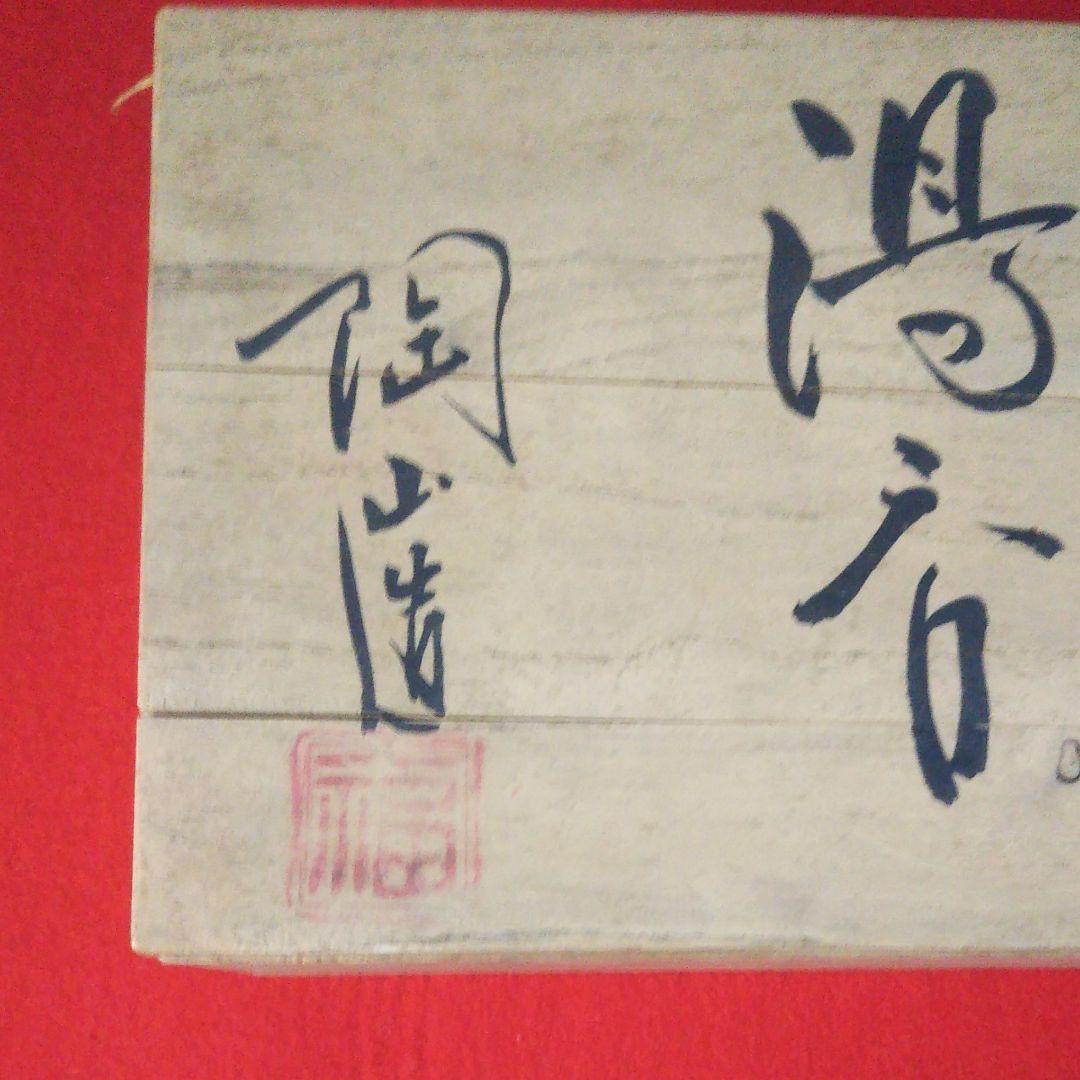 湯呑
陶山造